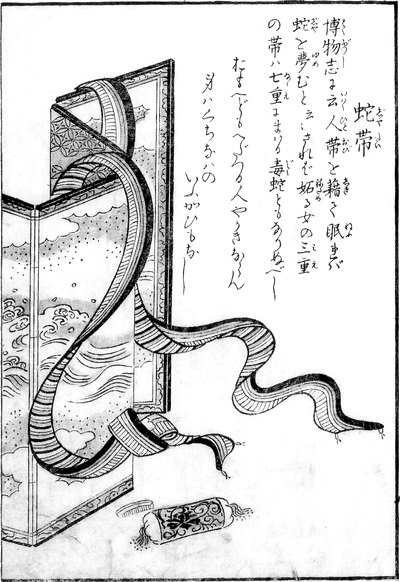 蛇帯
博物志に云人帯を藉て眠れば
蛇を夢むと云々されば妬る女の三重
の帯ハ七重にまはる毒蛇ともなりぬべし
おもへどもへだつる人やかきならん
身ハくちなハの
いふかひもなし